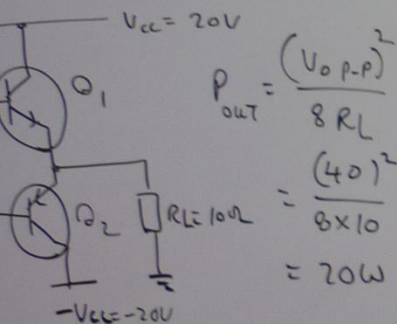 Vcc = 20V
Q1
Q2
RL=10Ω
-Vcc=-20V
POUT = (Vo P-P)² / 8 RL
= (40)² / 8×10
= 20W